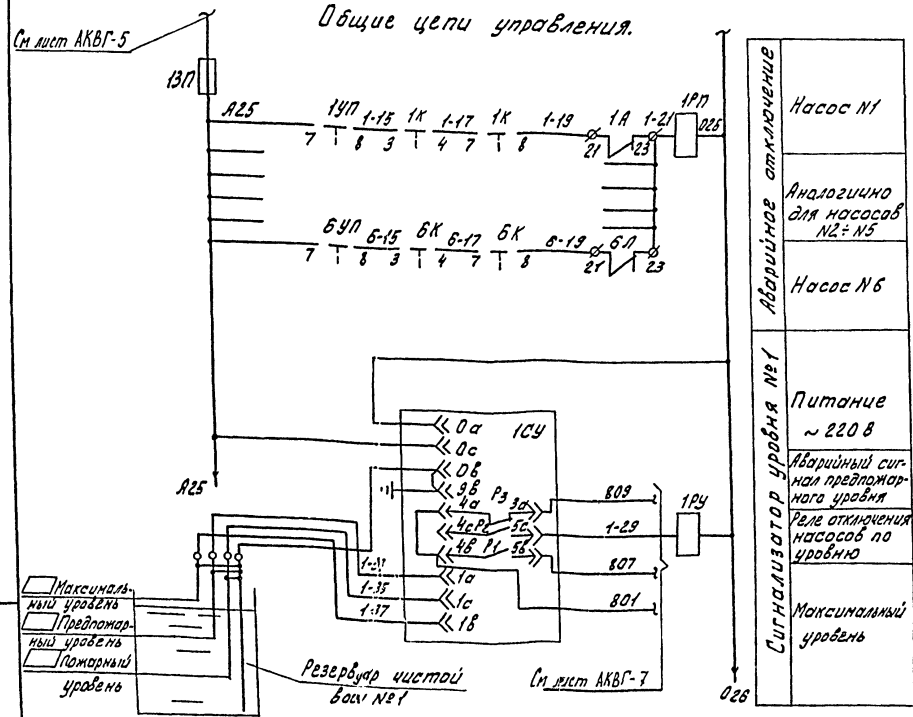 Общие цепи управления.
См лист АКВГ-5
13П
А25
7
1УП
1-15
8
3
1К
1-17
4
7
1К
8
1-19
21
1А
1-21
23
1РП
026
7
6УП
6-15
8
3
6К
6-17
4
7
6К
8
6-19
21
6Л
23
А25
0а
0с
0в
9в
4а
4с
4в
1а
1с
1в
1СУ
Р3
3а
5с
Р1
5в
809
1-29
807
801
1РУ
1-35
1-37
Максималь-
ный уровень
Предпожар-
ный уровень
Пожарный
уровень
Резервуар чистой
воды №1
См лист АКВГ-7
026
Аварийное отключение
Насос N1
Аналогично
для насосов
N2÷N5
Насос N6
Сигнализатор уровня №1
Питание
~ 220 В
Аварийный сиг-
нал предпожар-
ного уровня
Реле отключения
насосов по
уровню
Максимальный
уровень